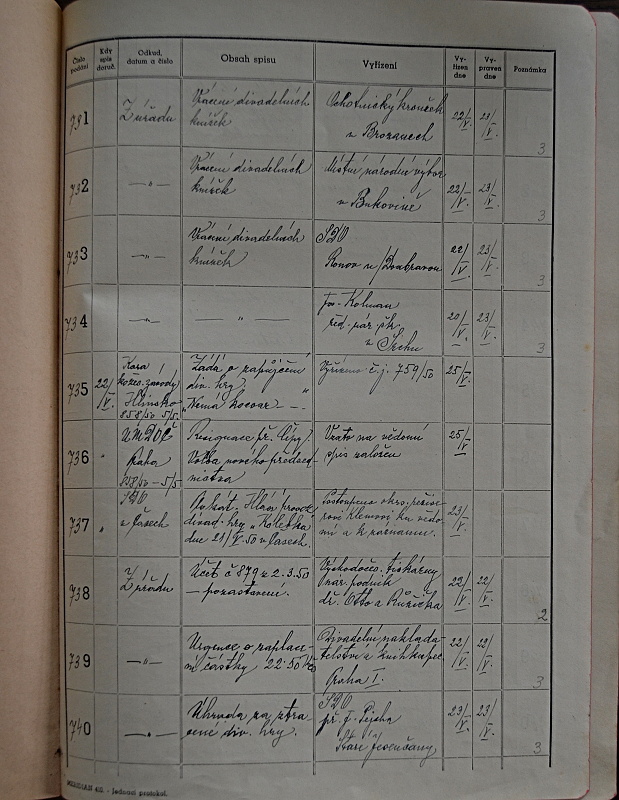 Číslo podání
Kdy spis doruč.
Odkud, datum a číslo
Obsah spisu
Vyřízení
Vyřízen dne
Vypraven dne
Poznámka
731
Z úřadu
Vrácení divadelních
knížek
Ochotnický kroužek
v Brozanech
22/V.
23/V.
3
732
—„—
Vrácení divadelních
knížek
Místní národní výbor
v Bukovině
22/V.
23/V.
3
733
—„—
Vrácení divadelních
knížek
SDO
Ronov n/Doubravou
22/V.
23/V.
3
734
—„—
— „ —
Kolman
20/V.
23/V.
3
735
22/V.
závody
Hlinsko
858/50 5/5.
Žádá o zapůjčení
div. hry
Vyřízeno č.j. 759/50
25/V.
736
„
ÚMDOČ
Praha
858/50 – 5/5
Resignace př.
Volba nového předsed-
nictva
Vzato na vědomí
spis založen
25/V
737
„
SDO
v Časech
Plakát. Hlásí proved.
divad. hry
dne 21/V. 50 v Časech.
Postoupeno okrs.
ku vědo-
mí a k
23/V.
738
Z úřadu
Účet č 879 z 2.3.50
— pozastaven.
Východočes. tiskárny
nár. podnik
dř. Otto a Růžička
22/V.
22/V.
2
739
—„—
Urgence o zaplace-
ní částky 22.50 Kčs
Divadelní naklada-
telství a knihkupec.
Praha I.
22/V.
22/V.
3
740
—„—
Úhrada za ztra-
cené div. hry.
SDO
př. F. Pejcha
Staré Jesenčany
23/V.
23/V.
3
MERIDIAN 412. - Jednací protokol.